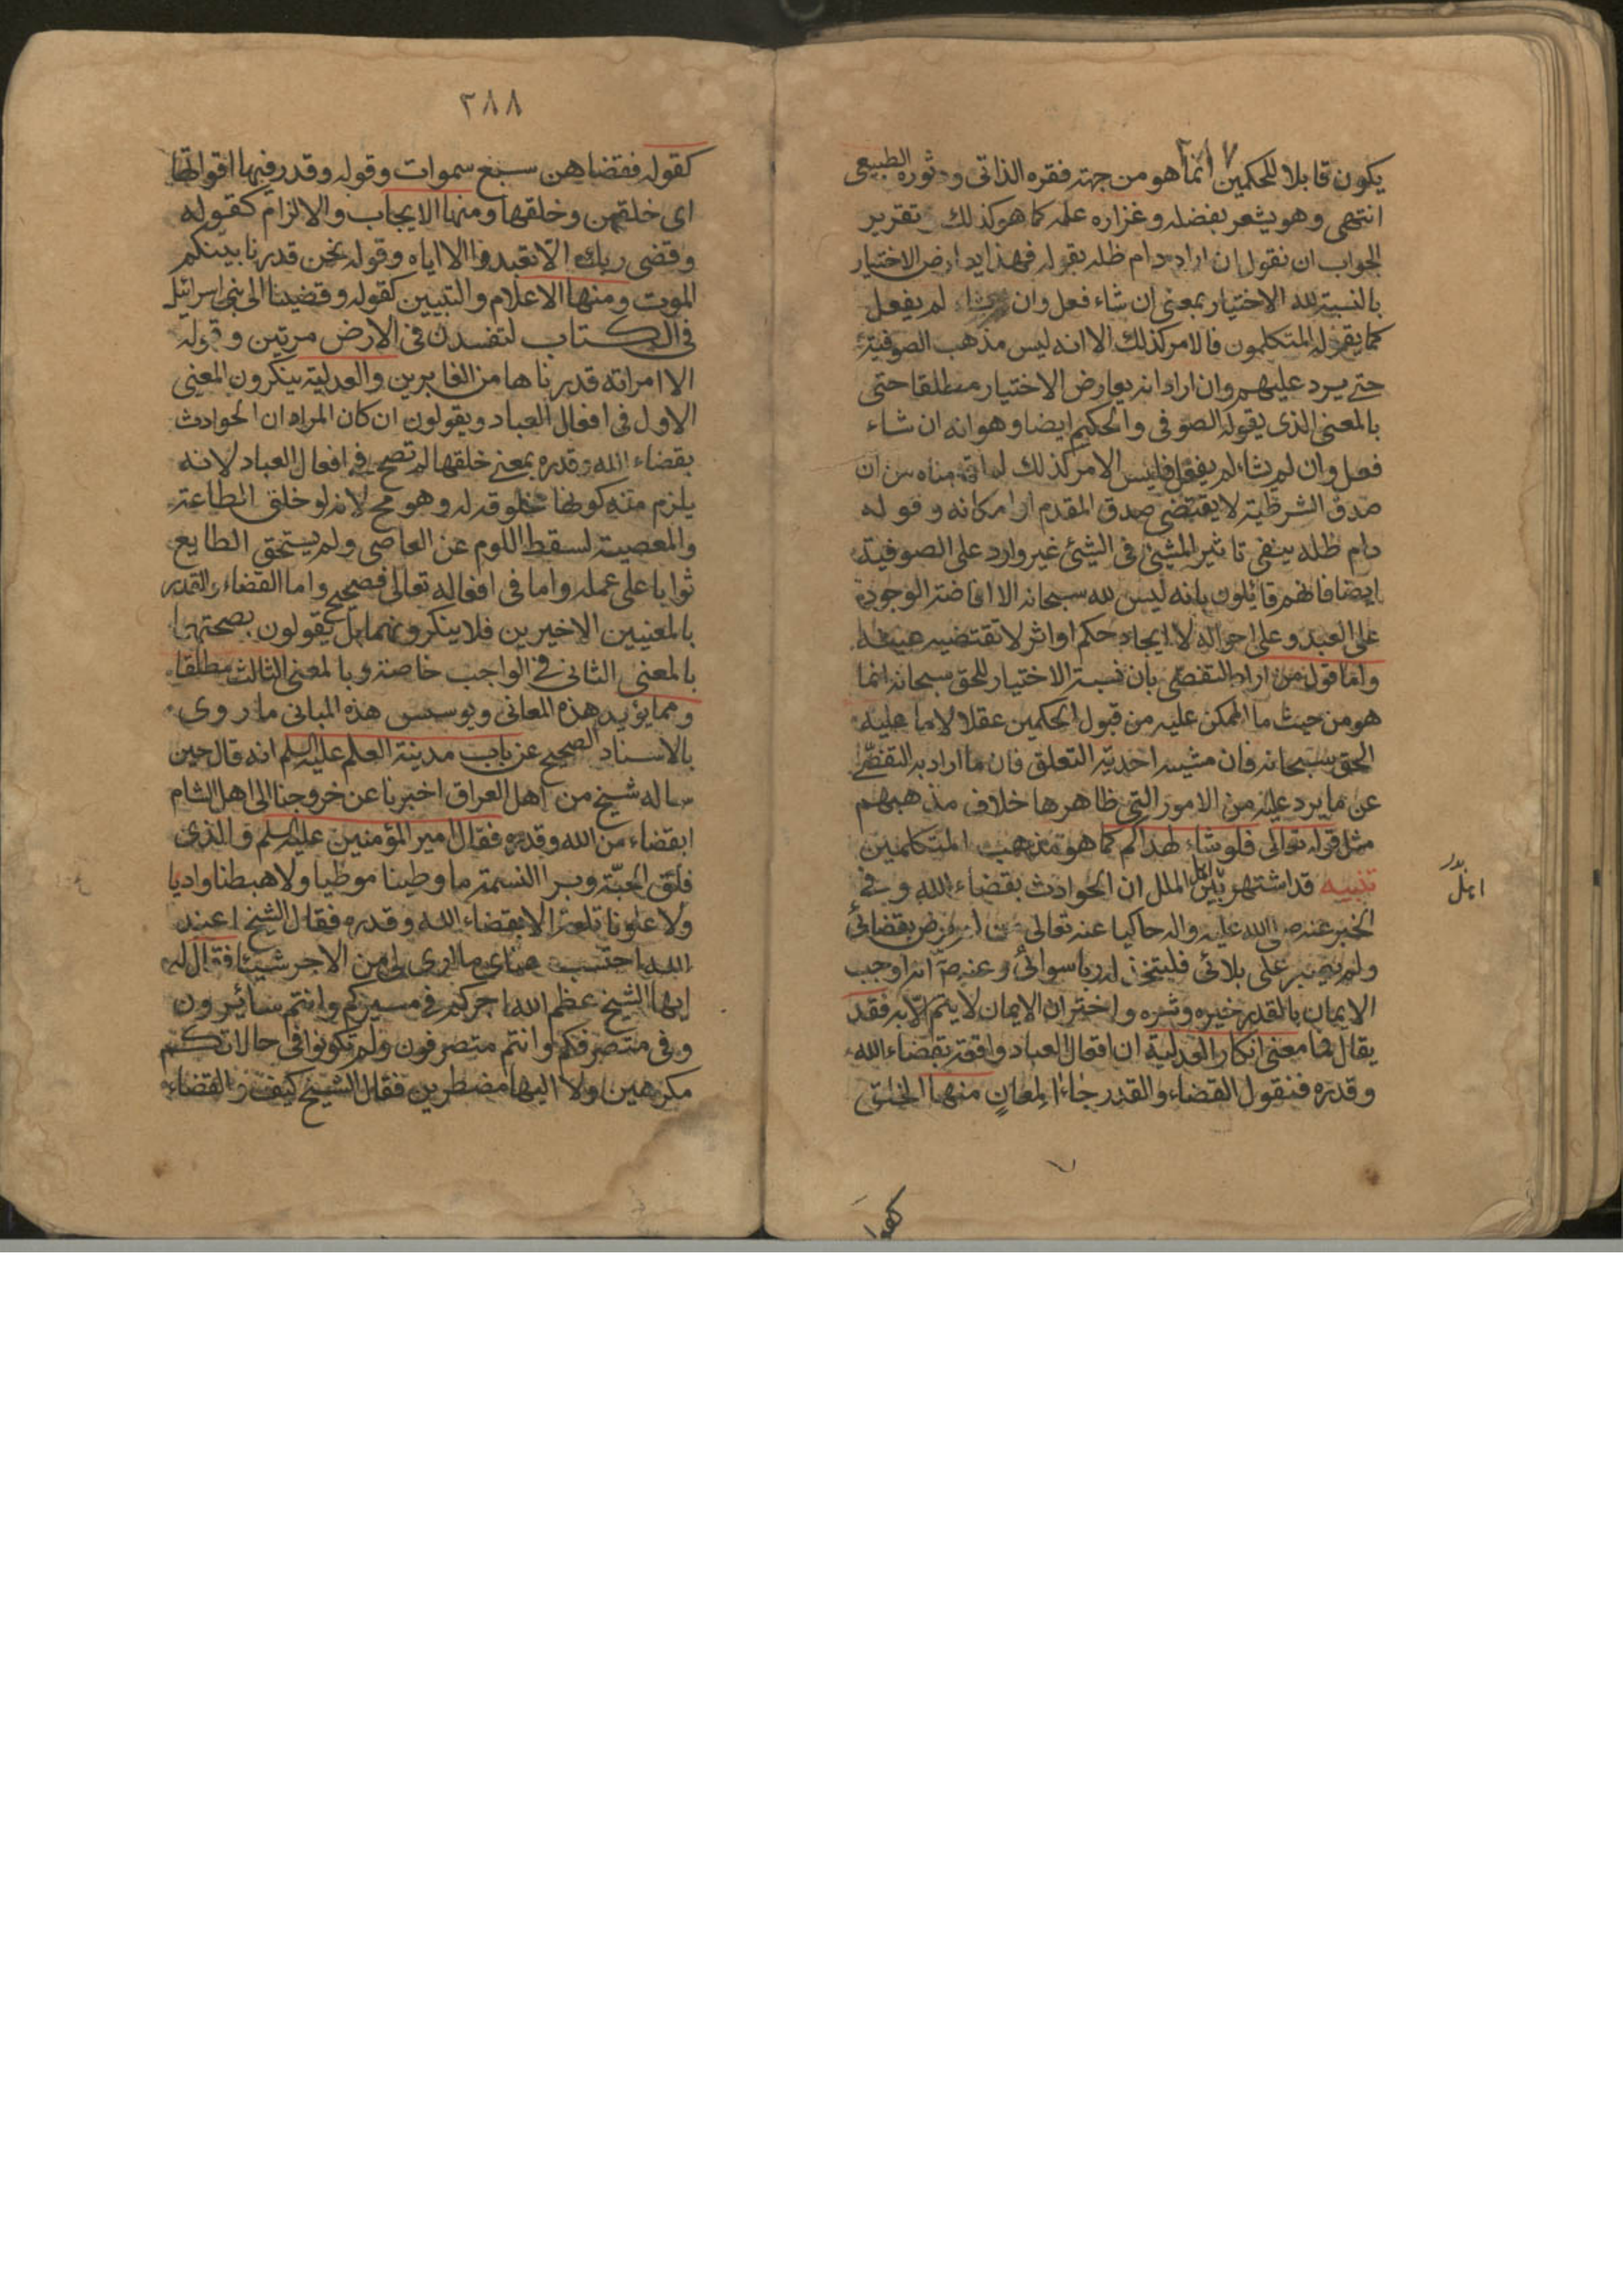 يكون قابلا للحكمين انما هو من جهته فقره الذاتي و الطبيعي
انتهى وهو يشعر بفضله وغزاره علمه كما هو كذلك تقرير
الجواب ان نقول ان اراد دام ظله بقوله فهذا يعارض الاختيار
بالنسبة لله الاختيار بمعنى ان شاء فعل وان لم يفعل
كما يقوله المتكلمون فالامر كذلك الا انه ليس مذهب الصوفية
حتى يرد عليهم وان اراد انه يعارض الاختيار مطلقا حتى
بالمعنى الذى يقوله الصوفى والحكيم ايضا وهو انه ان شاء
فعل وان لم يشاء لم يفعل فليس الامر كذلك لما قدمناه من ان
صدق الشرطية لا يقتضى صدق المقدم او امكانه وقوله
دام ظله ينفى تاثير المشيئ فى الشيئ غير وارد على الصوفية
ايضا فانهم قائلون بانه ليس لله سبحانه الا افاضة الوجود
على العبد وعلى احواله لا ايجاد حكم او اثر لا تقتضيه
واما قول من اراد التفصى بان نسبة الاختيار للحق سبحانه انما
هو من حيث ما الممكن عليه من قبول الحكمين عقلا لا ما عليه
الحق سبحانه فان مشيته احدية التعلق فان ما اراد به التفصى
عن ما يرد عليه من الامور التى ظاهرها خلاف مذهبهم
مثل قوله تعالى فلو شاء لهداكم كما هو مذهب المتكلمين
تنبيه قد اشتهر بين اهل الملل ان الحوادث بقضاء الله وفى
الخبر عنه صلى الله عليه واله حاكيا عنه تعالى من لم يرض بقضائى
ولم يصبر على بلائى فليتخذ له ربا سوائى وعنه ص انه اوجب
الايمان بالقدر خيره وشره واخبر ان الايمان لا يتم الا به فقد
يقال فما معنى انكار العدلية ان افعال العباد واقعة بقضاء الله
وقدره فنقول القضاء والقدر جاءا لمعان منها الخلق
٢٨٨
كقوله فقضاهن سبع سموات وقوله وقدر فيها اقواتها
اى خلقهن وخلقها ومنها الايجاب والالزام كقوله
وقضى ربك الا تعبدوا الا اياه وقوله نحن قدرنا بينكم
الموت ومنها الاعلام والتبيين كقوله وقضينا الى بنى اسرائيل
فى الكتاب لتفسدن فى الارض مرتين وقوله
الا امراته قدرناها من الغابرين والعدلية ينكرون المعنى
الاول فى افعال العباد ويقولون ان كان المراد ان الحوادث
بقضاء الله وقدره بمعنى خلقها لم تصح فى افعال العباد لانه
يلزم منه كونها مخلوقه له وهو مح لانه لو خلق الطاعة
والمعصية لسقط اللوم عن العاصى ولم يستحق الطايع
ثوابا على عمله واما فى افعاله تعالى فصحيح واما القضاء والقدر
بالمعنيين الاخيرين فلا ينكرونهما بل يقولون بصحتهما
بالمعنى الثانى فى الواجب خاصة وبالمعنى الثالث مطلقا
ومما يؤيد هذه المعانى ويوسس هذه المبانى ما روى
بالاسناد الصحيح عن باب مدينة العلم عليه السلم انه قال حين
ساله شيخ من اهل العراق اخبرنا عن خروجنا الى اهل الشام
ابقضاء من الله وقدره فقال امير المؤمنين عليه السلم والذى
فلق الحبة وبرا النسمة ما وطينا موطيا ولا هبطنا واديا
ولا علونا تلعة الا بقضاء الله وقدره فقال الشيخ اعند
الله احتسب عنائى ما ارى لى من الاجر شيئا فقال له
ايها الشيخ عظم الله اجركم فى مسيركم وانتم سائرون
وفى منصرفكم وانتم منصرفون ولم تكونوا فى حالاتكم
مكرهين ولا اليها مضطرين فقال الشيخ كيف والقضاء